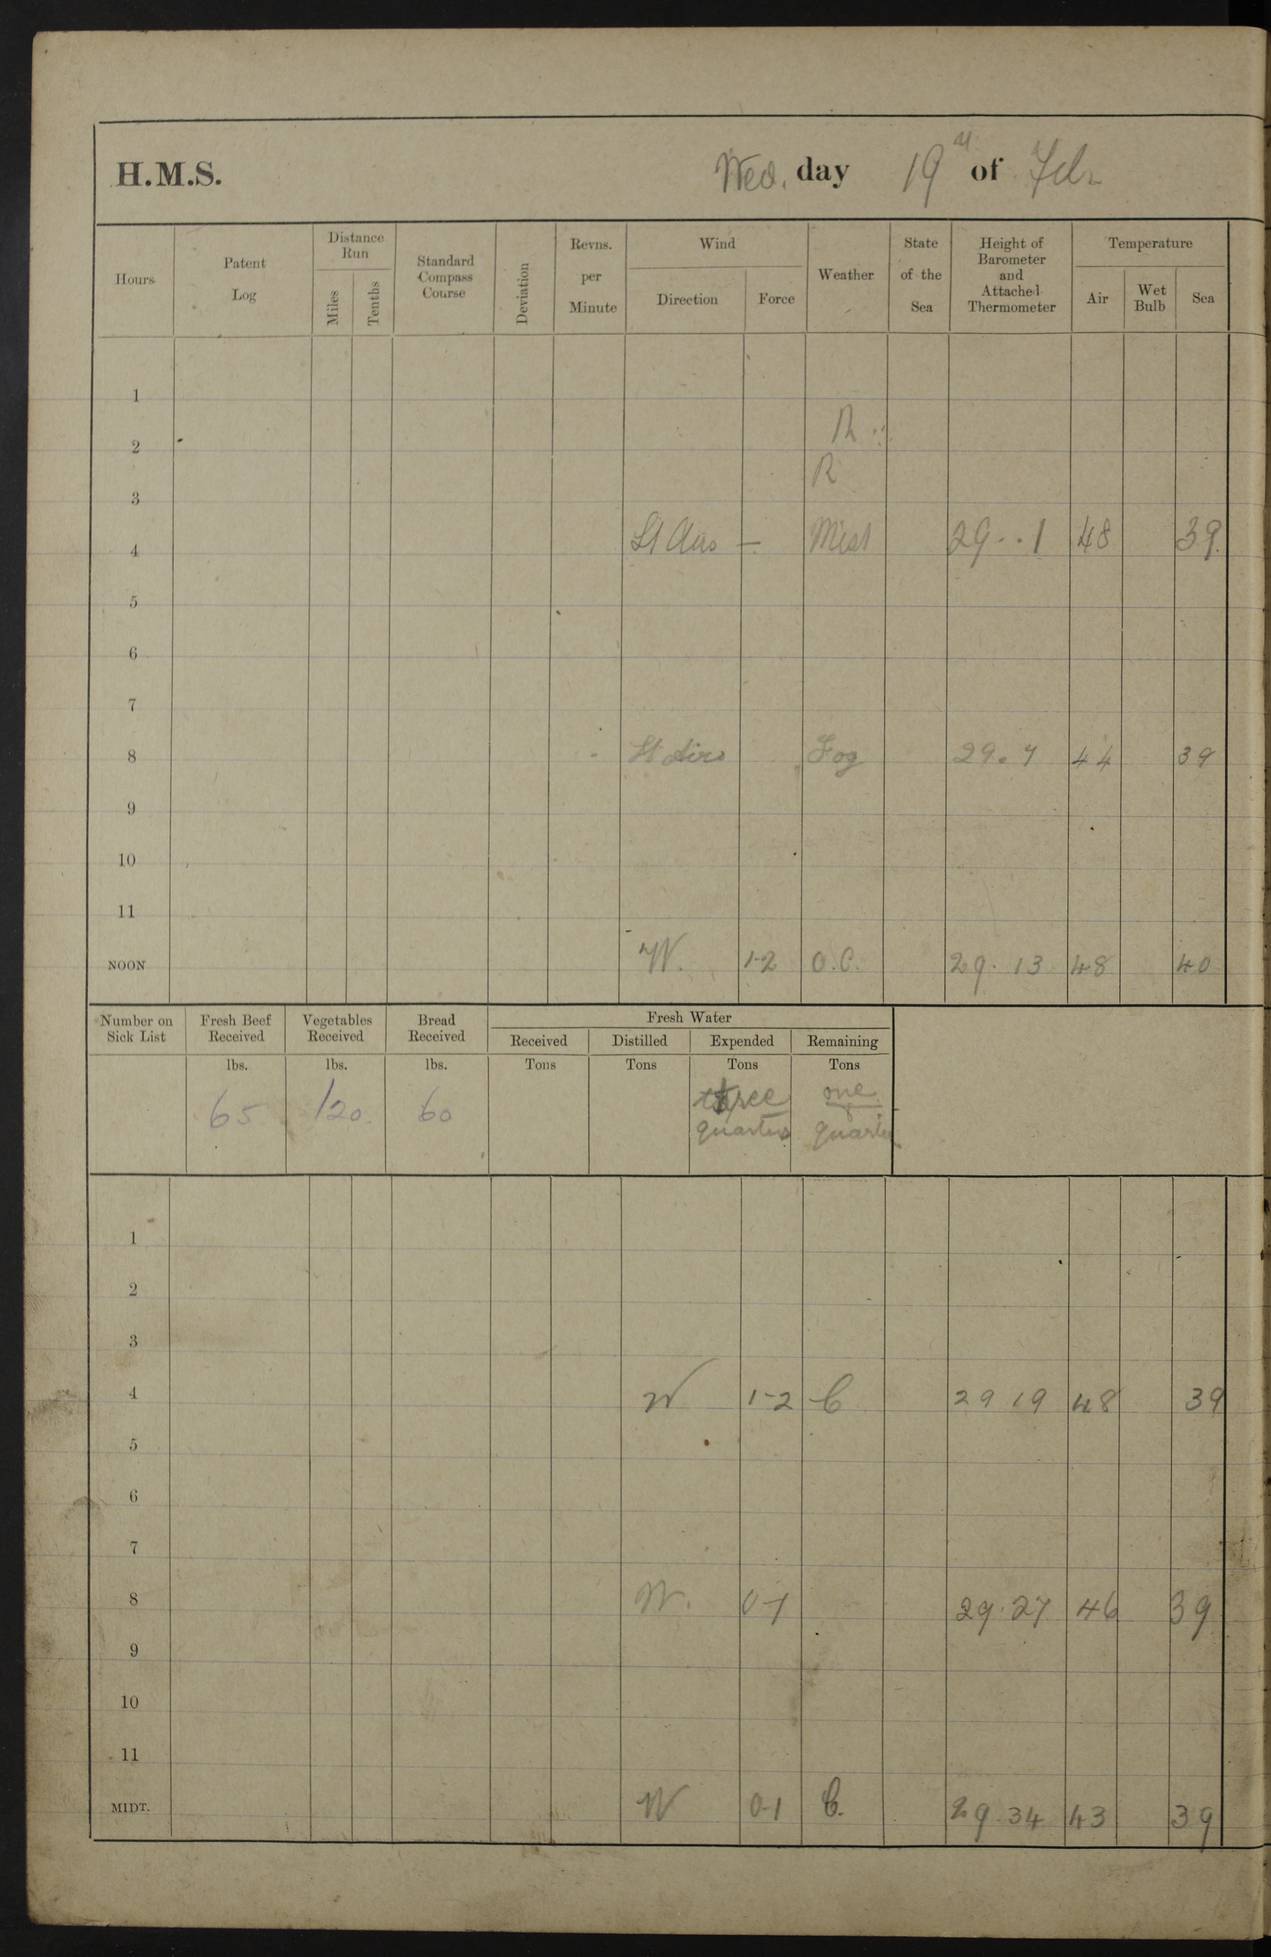 H.M.S. Wed. day 19th of Feb
Hours Patent Log Distance Run Miles Tenths Standard Compass Course Deviation Revns. per Minute Wind Direction Force Weather State of the Sea Height of Barometer and Attached Thermometer Temperature Air Wet Bulb Sea
1
2 R
3 R
4 Lt Airs — Mist 29..1 48 39
5
6
7
8 Lt Airs Fog 29.7 44 39
9
10
11
NOON W. 1-2 O.C. 29.13 48 40
Number on Sick List Fresh Beef Received Vegetables Received Bread Received Fresh Water
Received Distilled Expended Remaining
lbs. lbs. lbs. Tons Tons Tons Tons
65 120. 60 three quarters one quarter
1
2
3
4 W 1-2 C 29 19 48 39
5
6
7
8 W. 0-1 29.27 46 39
9
10
11
MIDT. W 0-1 C. 29.34 43 39